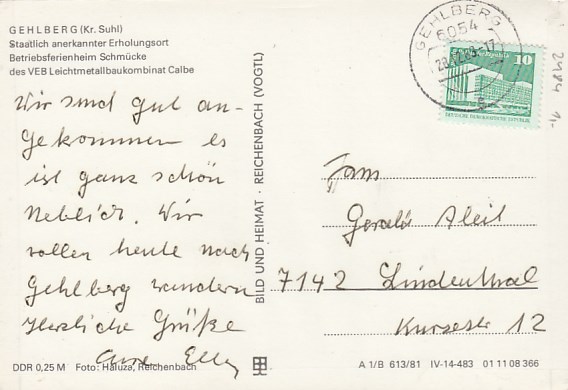 GEHLBERG (Kr. Suhl)
Staatlich anerkannter Erholungsort
Betriebsferienheim Schmücke
des VEB Leichtmetallbaukombinat Calbe
Wir sind gut an-
gekommen es
ist ganz schön
neblich. Wir
wollen heute nach
Gehlberg wandern
Herzliche Grüße
Eure
DDR 0,25 M Foto: Haluza, Reichenbach
BILD UND HEIMAT · REICHENBACH (VOGTL)
GEHLBERG
6054
10
DEUTSCHE DEMOKRATISCHE REPUBLIK
2484 1,-
Fam
7142 Lindenthal
Kurzestr 12
A 1/B 613/81 IV-14-483 01 11 08 366